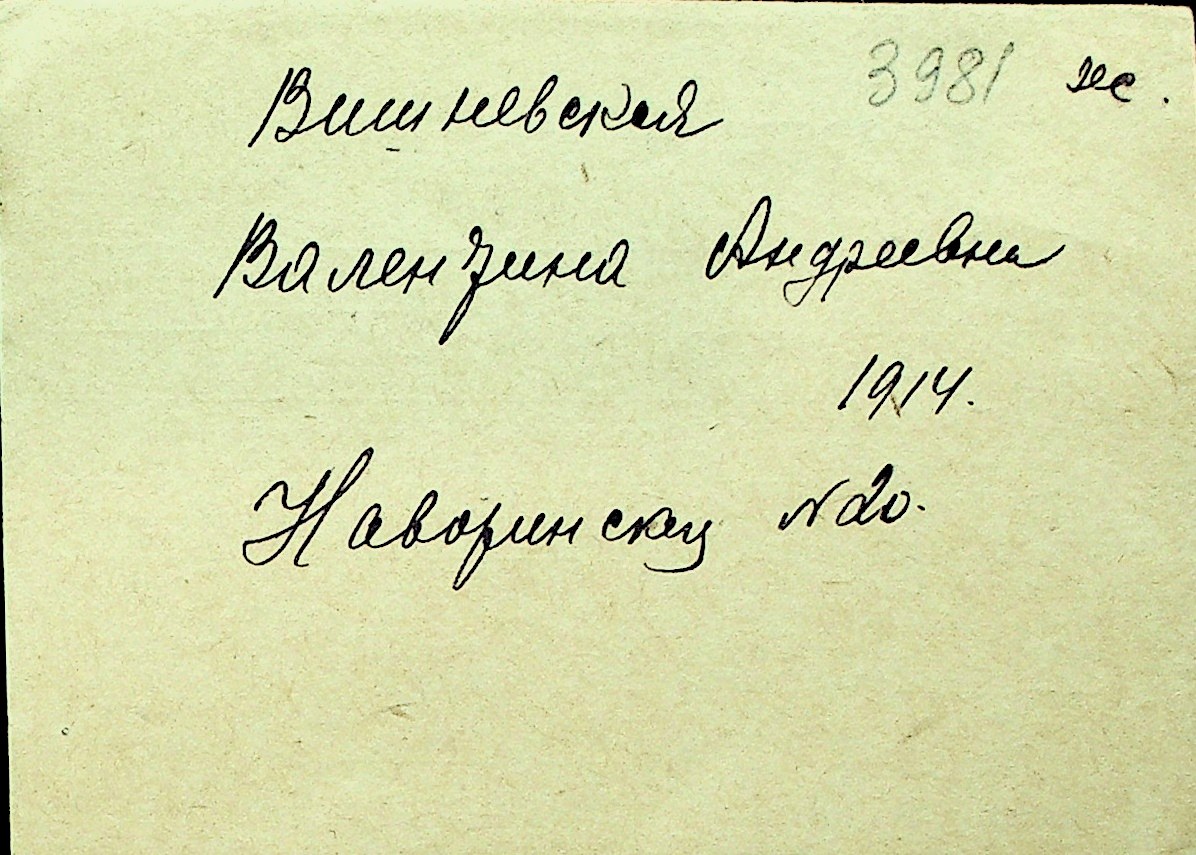 3981 ж.
Вишневская
Валентина Андреевна
1914.
№20.